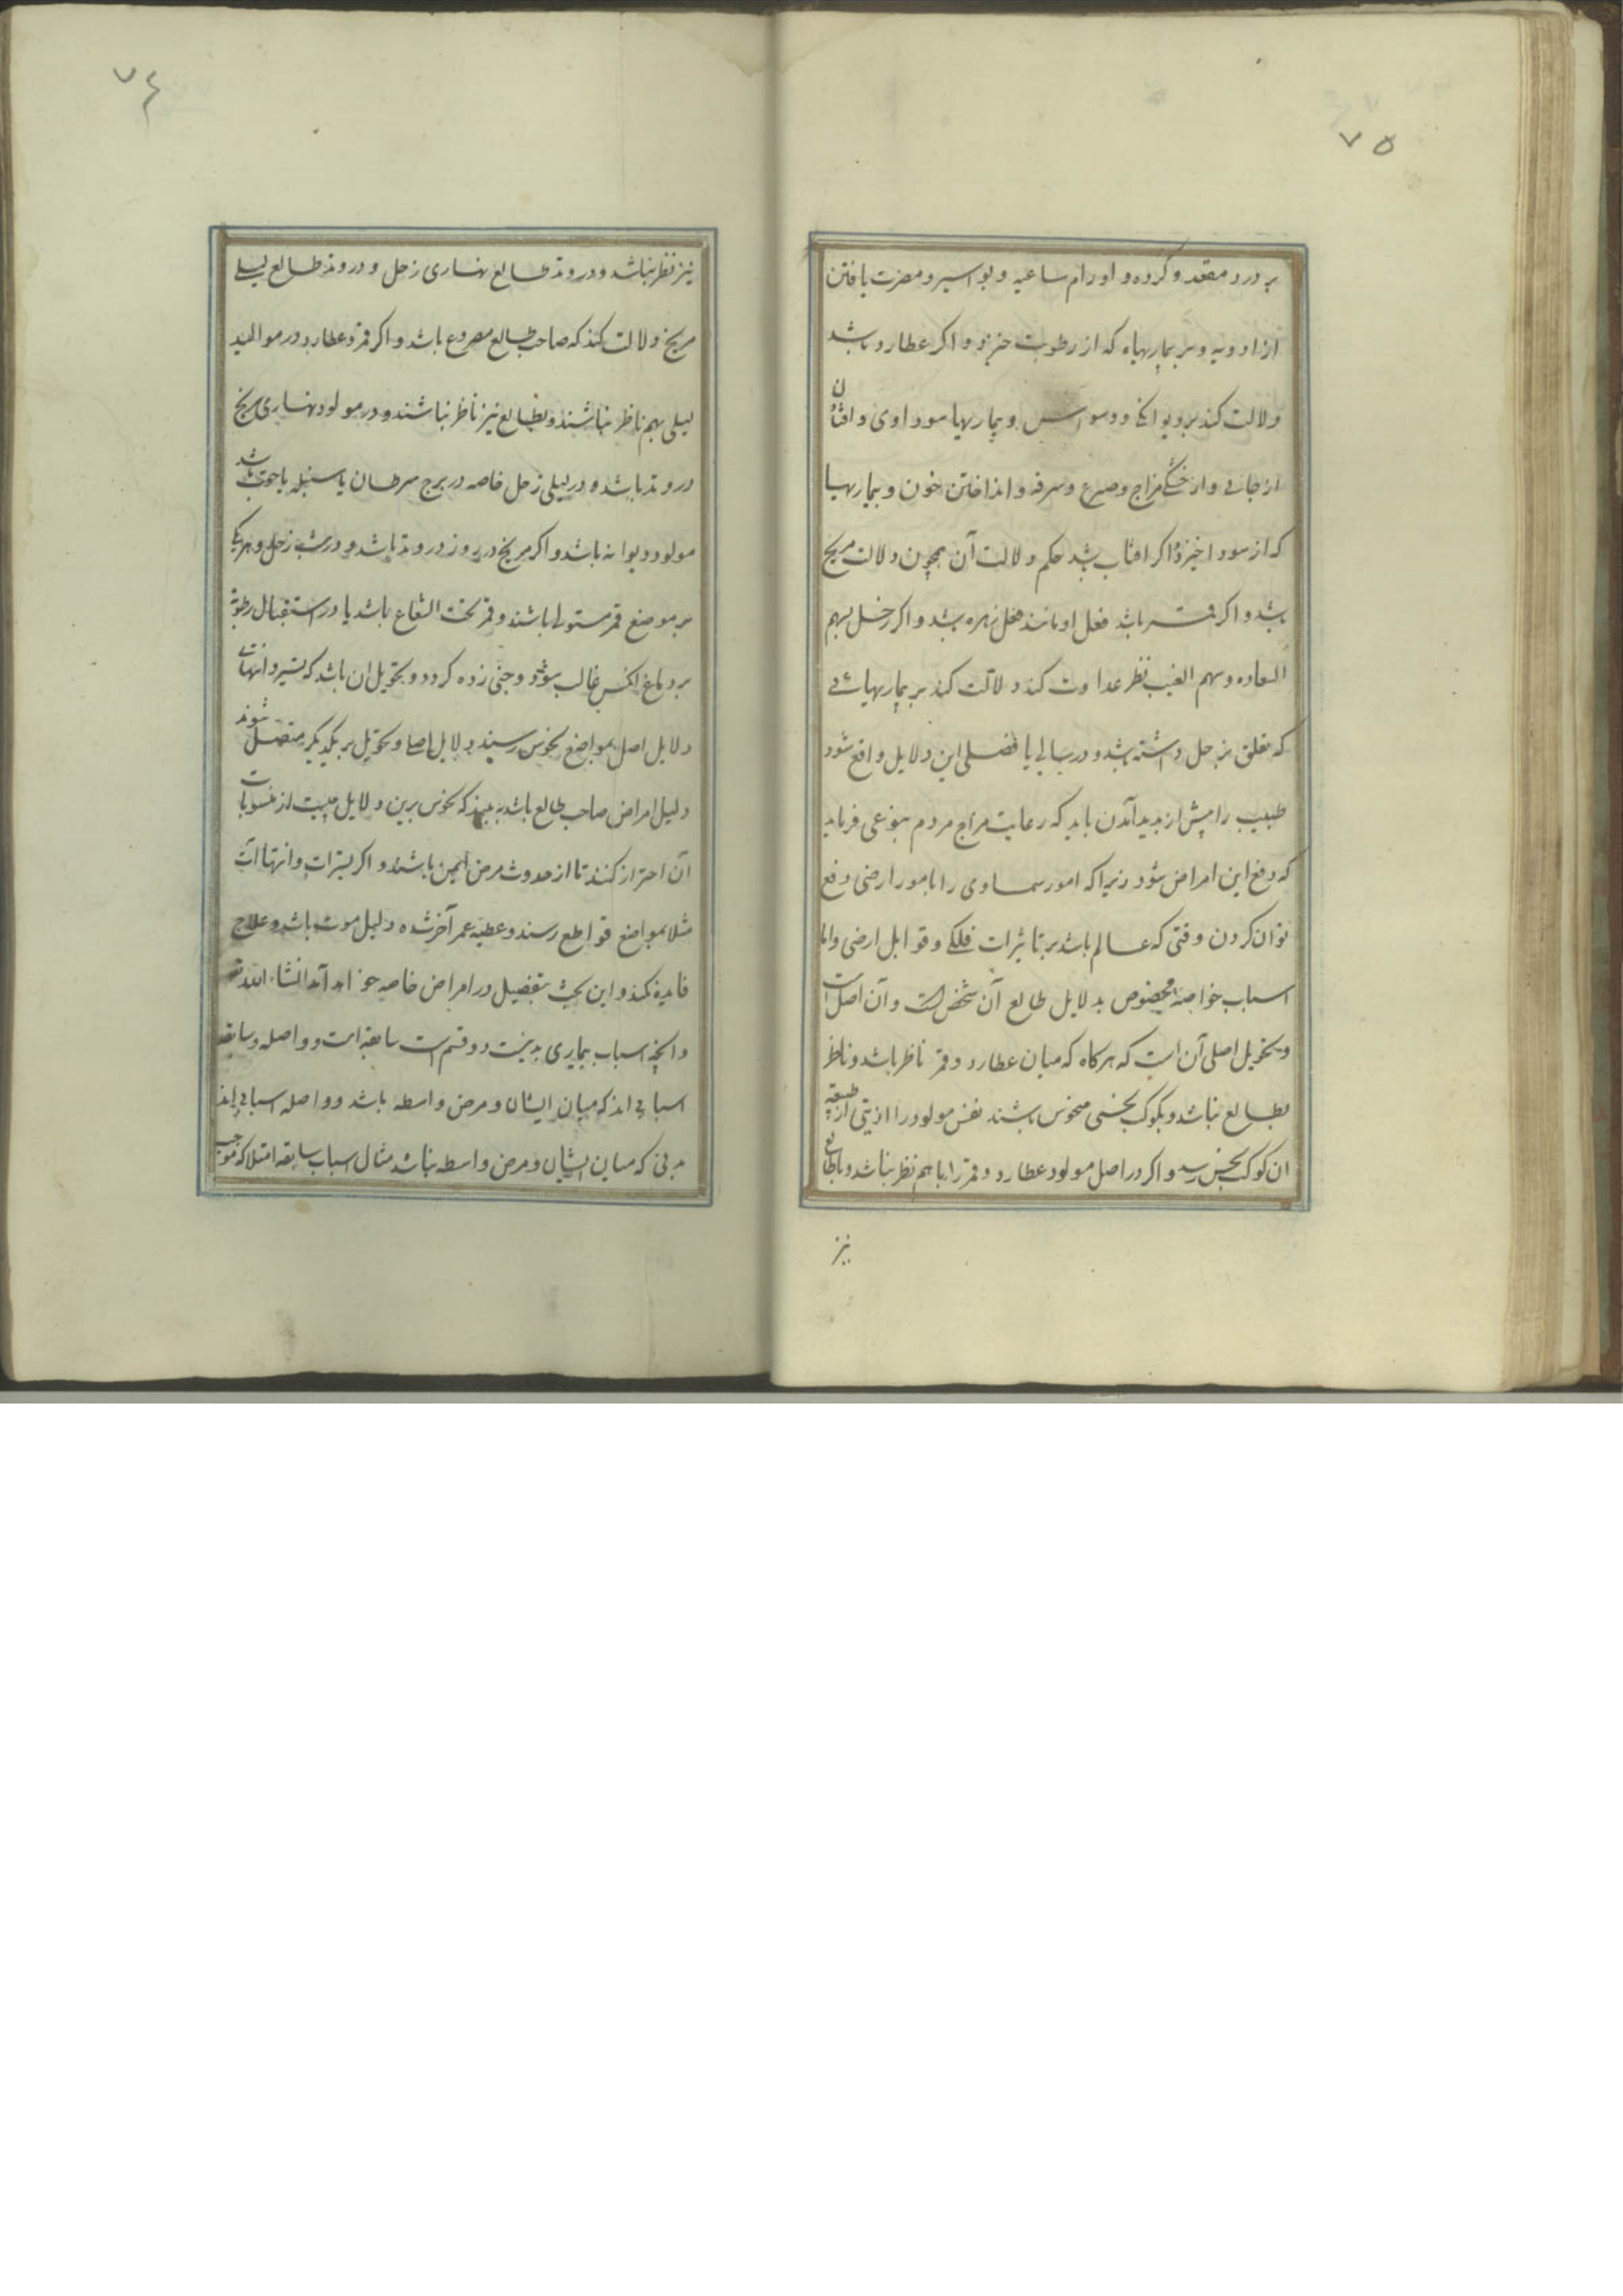 ۷۵
بر درد مقعد و کرده و اورام ساعیه و بواسیر و مضرت یافتن
از ادویه و بر بیماریهاء که از رطوبت خیزد و اکر عطارد باشد
دلالت کند بر دیوانکی و وسواس و بیماریهاء سوداوی و افتادن
از جائی و از خشکی مزاج و صرع و سرفه و انداختن خون و بیماریها
که از سودا خیزد و اکر افتاب باشد حکم دلالت آن همچون دلالت مریخ
باشد و اکر قمر باشد فعل او مانند فعل زهره باشد و اکر زحل بسهم
السعاده و سهم الغیب نظر عداوت کند دلالت کند بر بیماریهائی
که تعلق بزحل داشته باشد و در سالی یا فصلی این دلایل واقع شود
طبیب را پیش از پدید آمدن باید که رعایت مزاج مردم بنوعی فرماید
که دفع این امراض شود زیرا که امور سماوی را بامور ارضی دفع
توان کردن وقتی که عالم باشد بر تاثیرات فلکی و قوابل ارضی و اما
اسباب خواصه مخصوص بدلایل طالع آن شخص است و آن اصل است
و تحویل اصلی آن است که هرکاه که میان عطارد و قمر ناظر باشد و ناظر
بطالع نباشد و بکوکب نحسی منحوس باشند نفس مولود را اذیتی از طبیعة
ان کوکب نحس رسد و اکر در اصل مولود عطارد و قمر را باهم نظر نباشد و باطالع
نیز
۷۴
نیز نظر نباشد و در وتد طالع نهاری زحل و در وتد طالع لیلی
مریخ دلالت کند که صاحب طالع مصروع باشد و اکر قمر و عطارد در موالید
لیلی بهم ناظر نباشند و بطالع نیز ناظر نباشند و در مولود نهاری مریخ
در وتد باشد و در لیلی زحل خاصه در برج سرطان یا سنبله یا حوت باشد
مولود دیوانه باشد و اکر مریخ در روز در وتد باشد و در شب زحل و هریک
بر موضع قمر مستولی باشند و قمر تحت الشعاع باشد یا در استقبال رطوبة
بر دماغ انکس غالب شود و جنی زده کردد و تحویل ان باشد که تسیر و انتهاات
دلایل اصل بمواضع نحوس رسند و دلایل اصل و تحویل بر یکدیکر متصل شوند
دلیل امراض صاحب طالع باشد ببیند که نحوس برین دلایل چیست از منسوبات
آن احتراز کنند تا از حدوث مرض ایمن باشند و اکر تسیرات و انتهاات
مثلا بمواضع قواطع رسند و عطیه عمر آخر شده دلیل موت باشد و علاج
فایده نکند و این بحث بتفصیل در امراض خاصه خواهد آمد انشاء الله تع
و انچه اسباب بیماری بدنیست دو قسم است سابقه است و واصله و سابقه
اسبابی اند که میان ایشان و مرض واسطه باشد و واصله اسبابی اند
بدنی که میان ایشان و مرض واسطه نباشد مثال اسباب سابقه امتلا که موجب